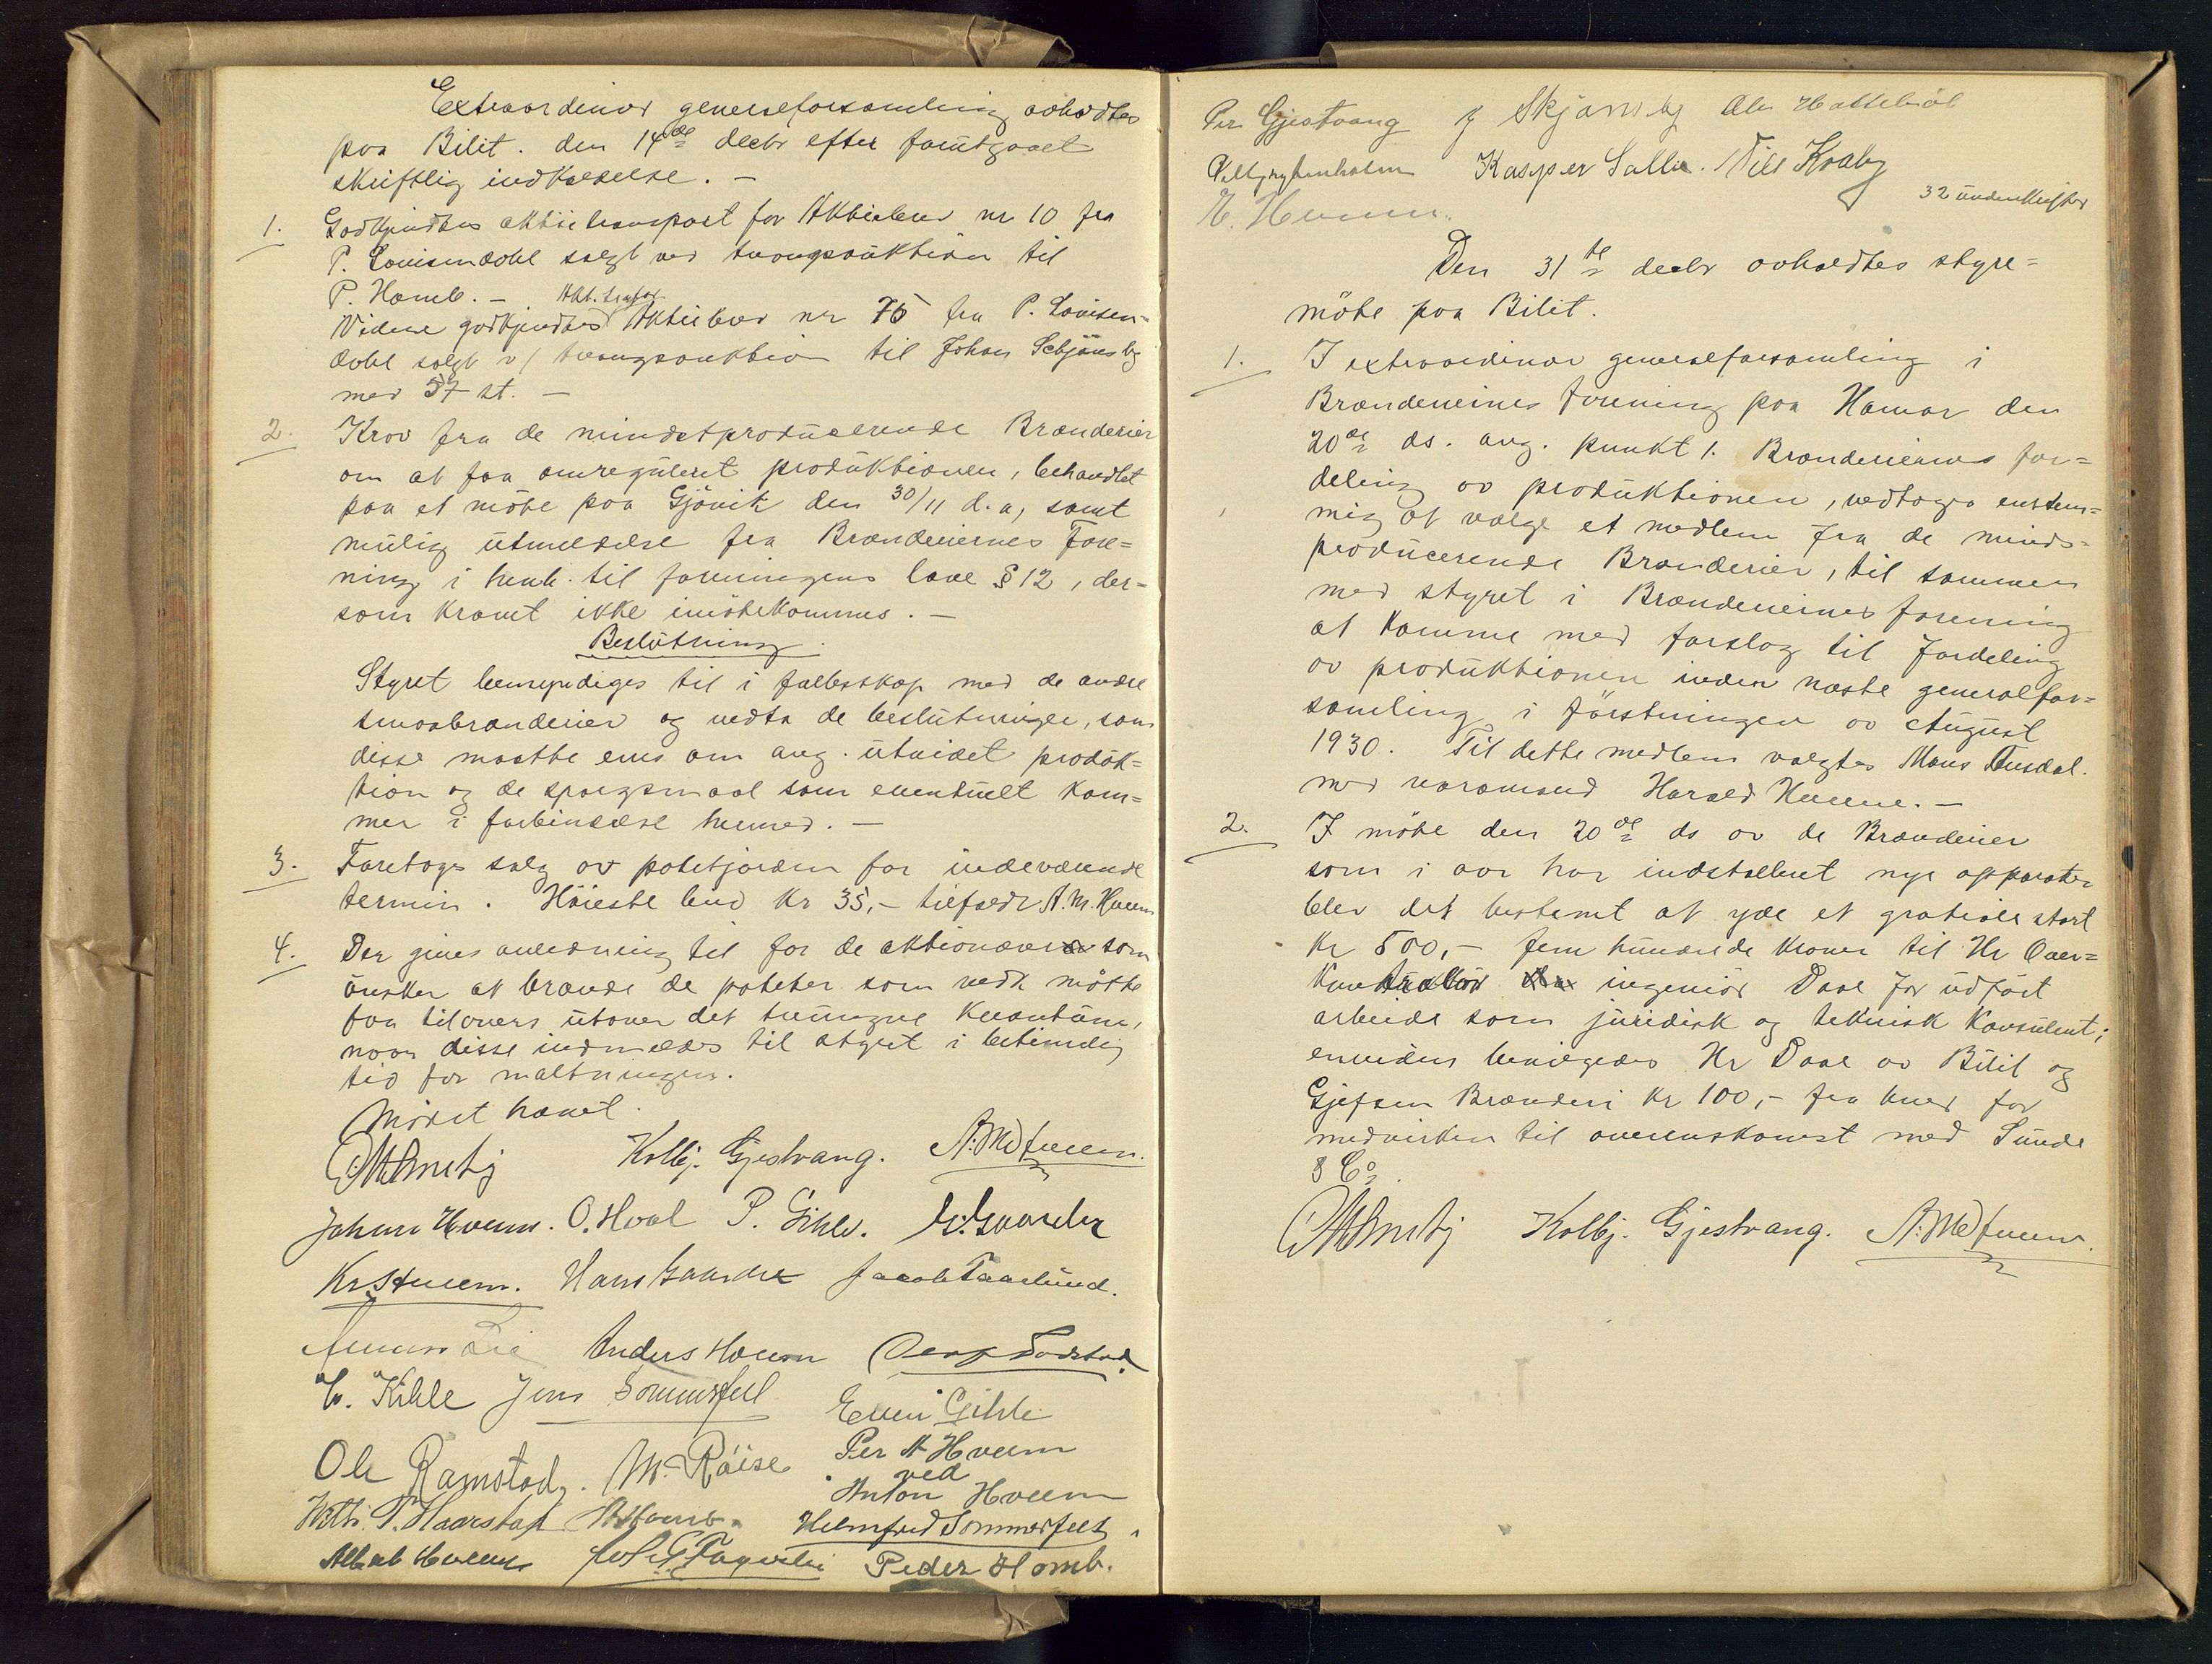 Extraordinær generalforsamling avholdtes
paa Bilit. den 14de decbr efter forutgaaet
skriftlig indkaldelse. —
1. Godkjendtes aktietransport for Aktiebrev nr 10 fra
P. Louisendahl solgt ved tvangsauktion til
P. Homb. —
Videre godkjendtes Akt. transp. Aktiebrev nr 75 fra P. Louisen=
dahl solgt v/ tvangsauktion til Johan Schjønsby
med 57 st. —
2. Krav fra de mindstproducerende Brænderier
om at faa omreguleret produktionen, behandlet
paa et møte paa Gjøvik den 30/11 d.a, samt
mulig utmeldelse fra Brænderiernes Fore=
ning i henh. til foreningens love § 12, der=
som kravet ikke imøtekommes. —
Beslutning.
Styret bemyndiges til i fællesskap med de andre
smaabrænderier og vedta de beslutninger, som
disse maatte enes om ang. utvidet produk=
tion og de spørgsmaal som eventuelt kom=
mer i forbindelse hermed. —
3. Foretoges salg av potetjorden for indeværende
termin. Høieste bud kr 35,- tilfaldt A. M. Hveem
4. Der gives anledning til for de aktionærer som
ønsker at brænde de poteter som vedk. måtte
faa tilovers utover det tvungne kvantum,
naar disse indmeldes til styret i betimelig
tid før maltningen.
Møtet hævet.
Kolbj. Gjestvang. A. M. Hveem.
Johan Hveem. O. Hoal P. Gihle. G. Gaarder
Kr. Hveem. Hans Gaarder Jacob Paarlund.
Anders Hveem
Kihle Jens Sommerfeld
Even Gihle
Ole Ramstad. M. Røise
Per A Hveem
ved
Anton Hveem
P. Haarstad P. Homb. Helmfrid Sommerfelt
Albert Hveem Peder Homb.
Per Gjestvang J Skjønsby Ole Hattebøl
Kasper Salle. Nils Kraby
E. Hveem.
32 underskrifter
Den 31te decbr avholdtes styre=
møte paa Bilit.
1. I extraordinær generalforsamling i
Brænderiernes forening paa Hamar den
20de ds. ang. punkt 1. Brænderiernes for=
deling av produktionen, vedtoges enstem=
mig at vælge et medlem fra de minds=
producerende Brænderier, til sammen
med styret i Brænderiernes forening
at komme med forslag til fordeling
av produktionen inden næste generalfor=
samling i førstningen av August
1930. Til dette medlem valgtes Mons Tusdal.
med varamand Harald Hveem. —
2. I møte den 20de ds av de Brænderier
som i aar har indstalleret nye apparater
blev det bestemt at yde et gratiale stort
kr 500,- fem hundrede kroner til Hr Over=
kontrollør ingeniør Daae for utført
arbeide som juridisk og teknisk konsulent;
enviders bevilgedes Hr Daae av Bilit og
Gjefsen Brænderi kr 100,- fra hver for
medvirken til overenskomst med Sunde
& Co.
Kolbj. Gjestvang. A. M. Hveem.